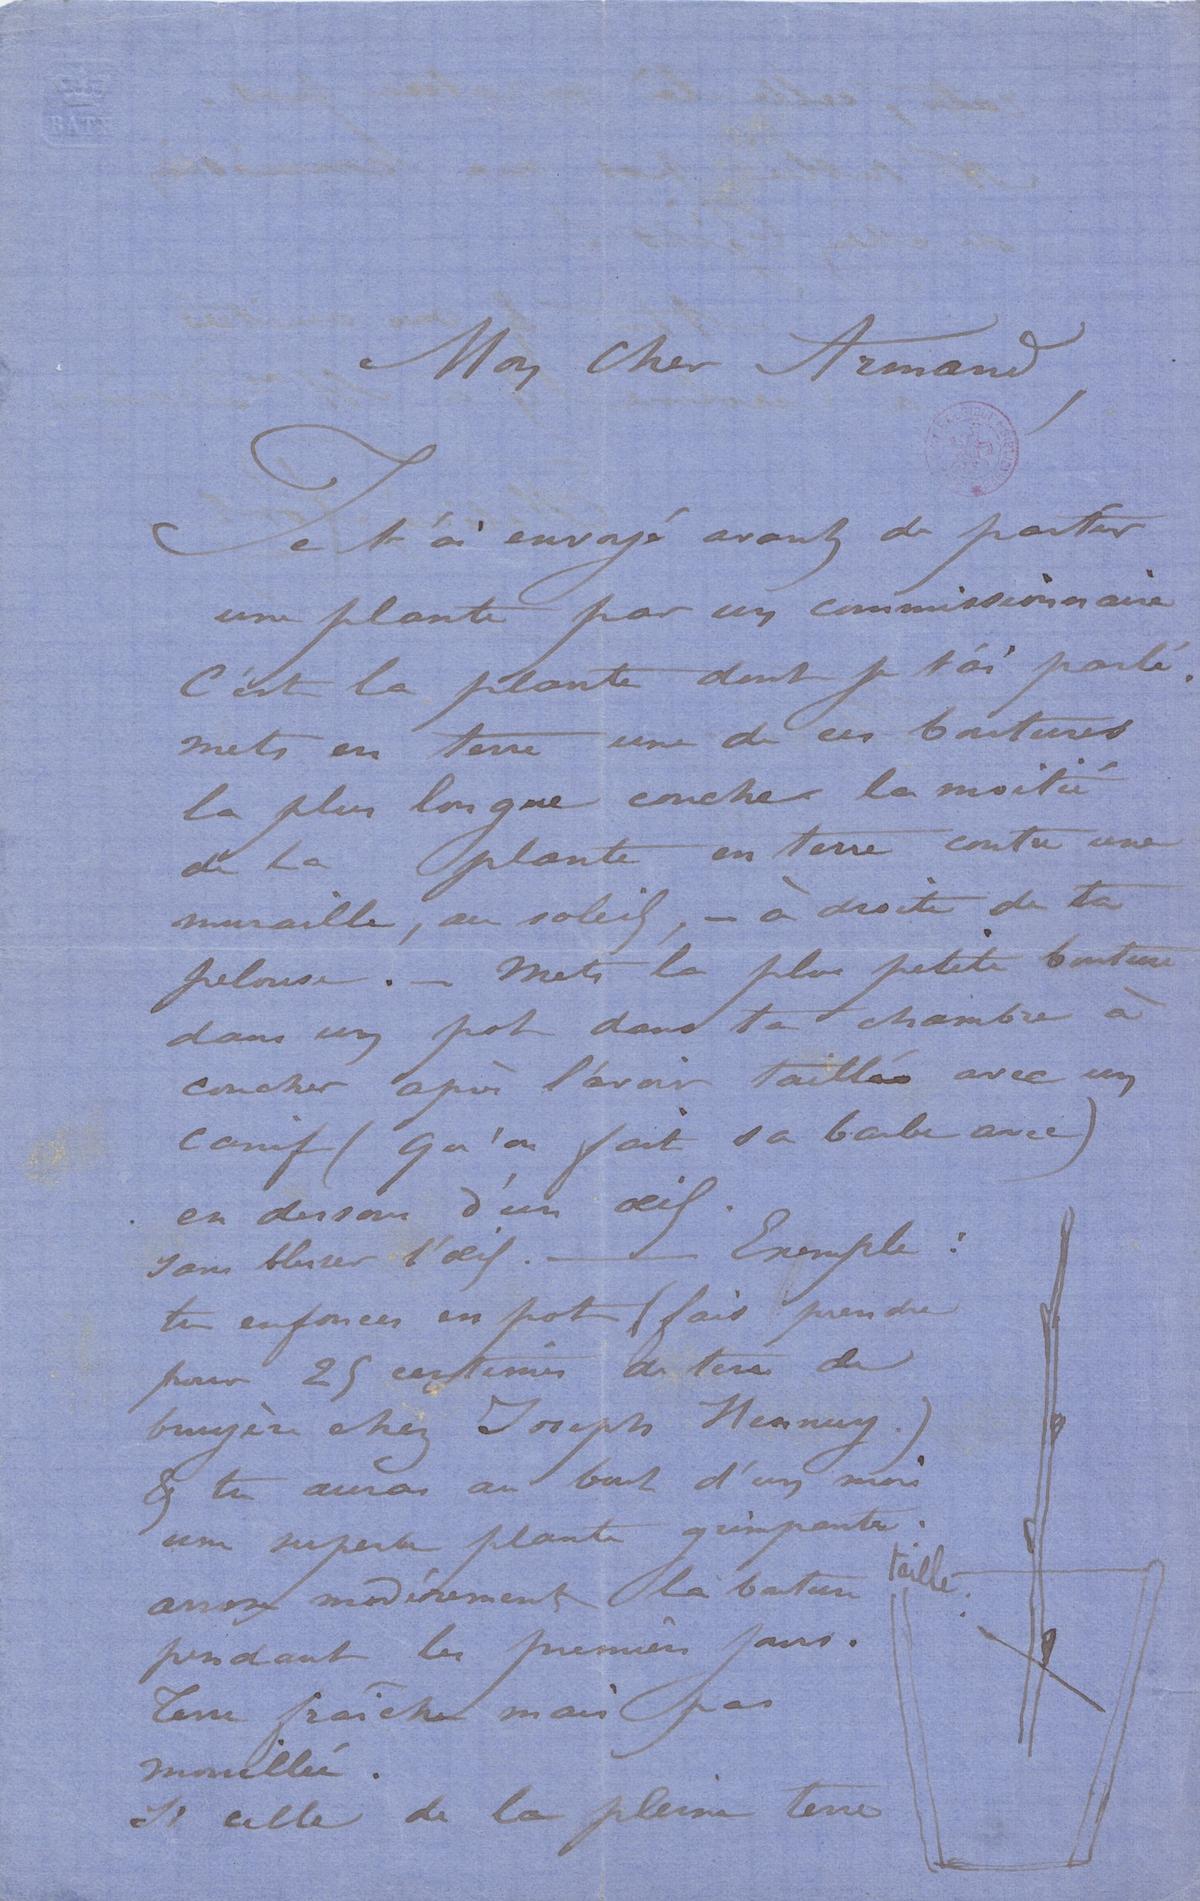 BATH
Mon cher Armand,
Je t'ai envoyé avant de partir
une plante par un commissionnaire
C'est la plante dont je t'ai parlé.
mets en terre une de ces boutures
la plus longue coucher la moitié
de la plante en terre contre une
muraille, au soleil, — à droite de ta
pelouse. — Mets la plus petite bouture
dans un pot dans ta chambre à
coucher après l'avoir taillée avec un
canif (qu'on fait sa barbe avec)
en dessous d'un œil.
sans blesser l'œil. — Exemple :
tu enfonces en pot (fais prendre
pour 25 centimes de terre de
bruyère chez Joseph Hennuy.)
& tu auras au bout d'un mois
une superbe plante grimpante.
arrose modérément la bouture
pendant les premiers jours.
Terre fraîche mais pas
mouillée.
Si celle de la pleine terre
taille.